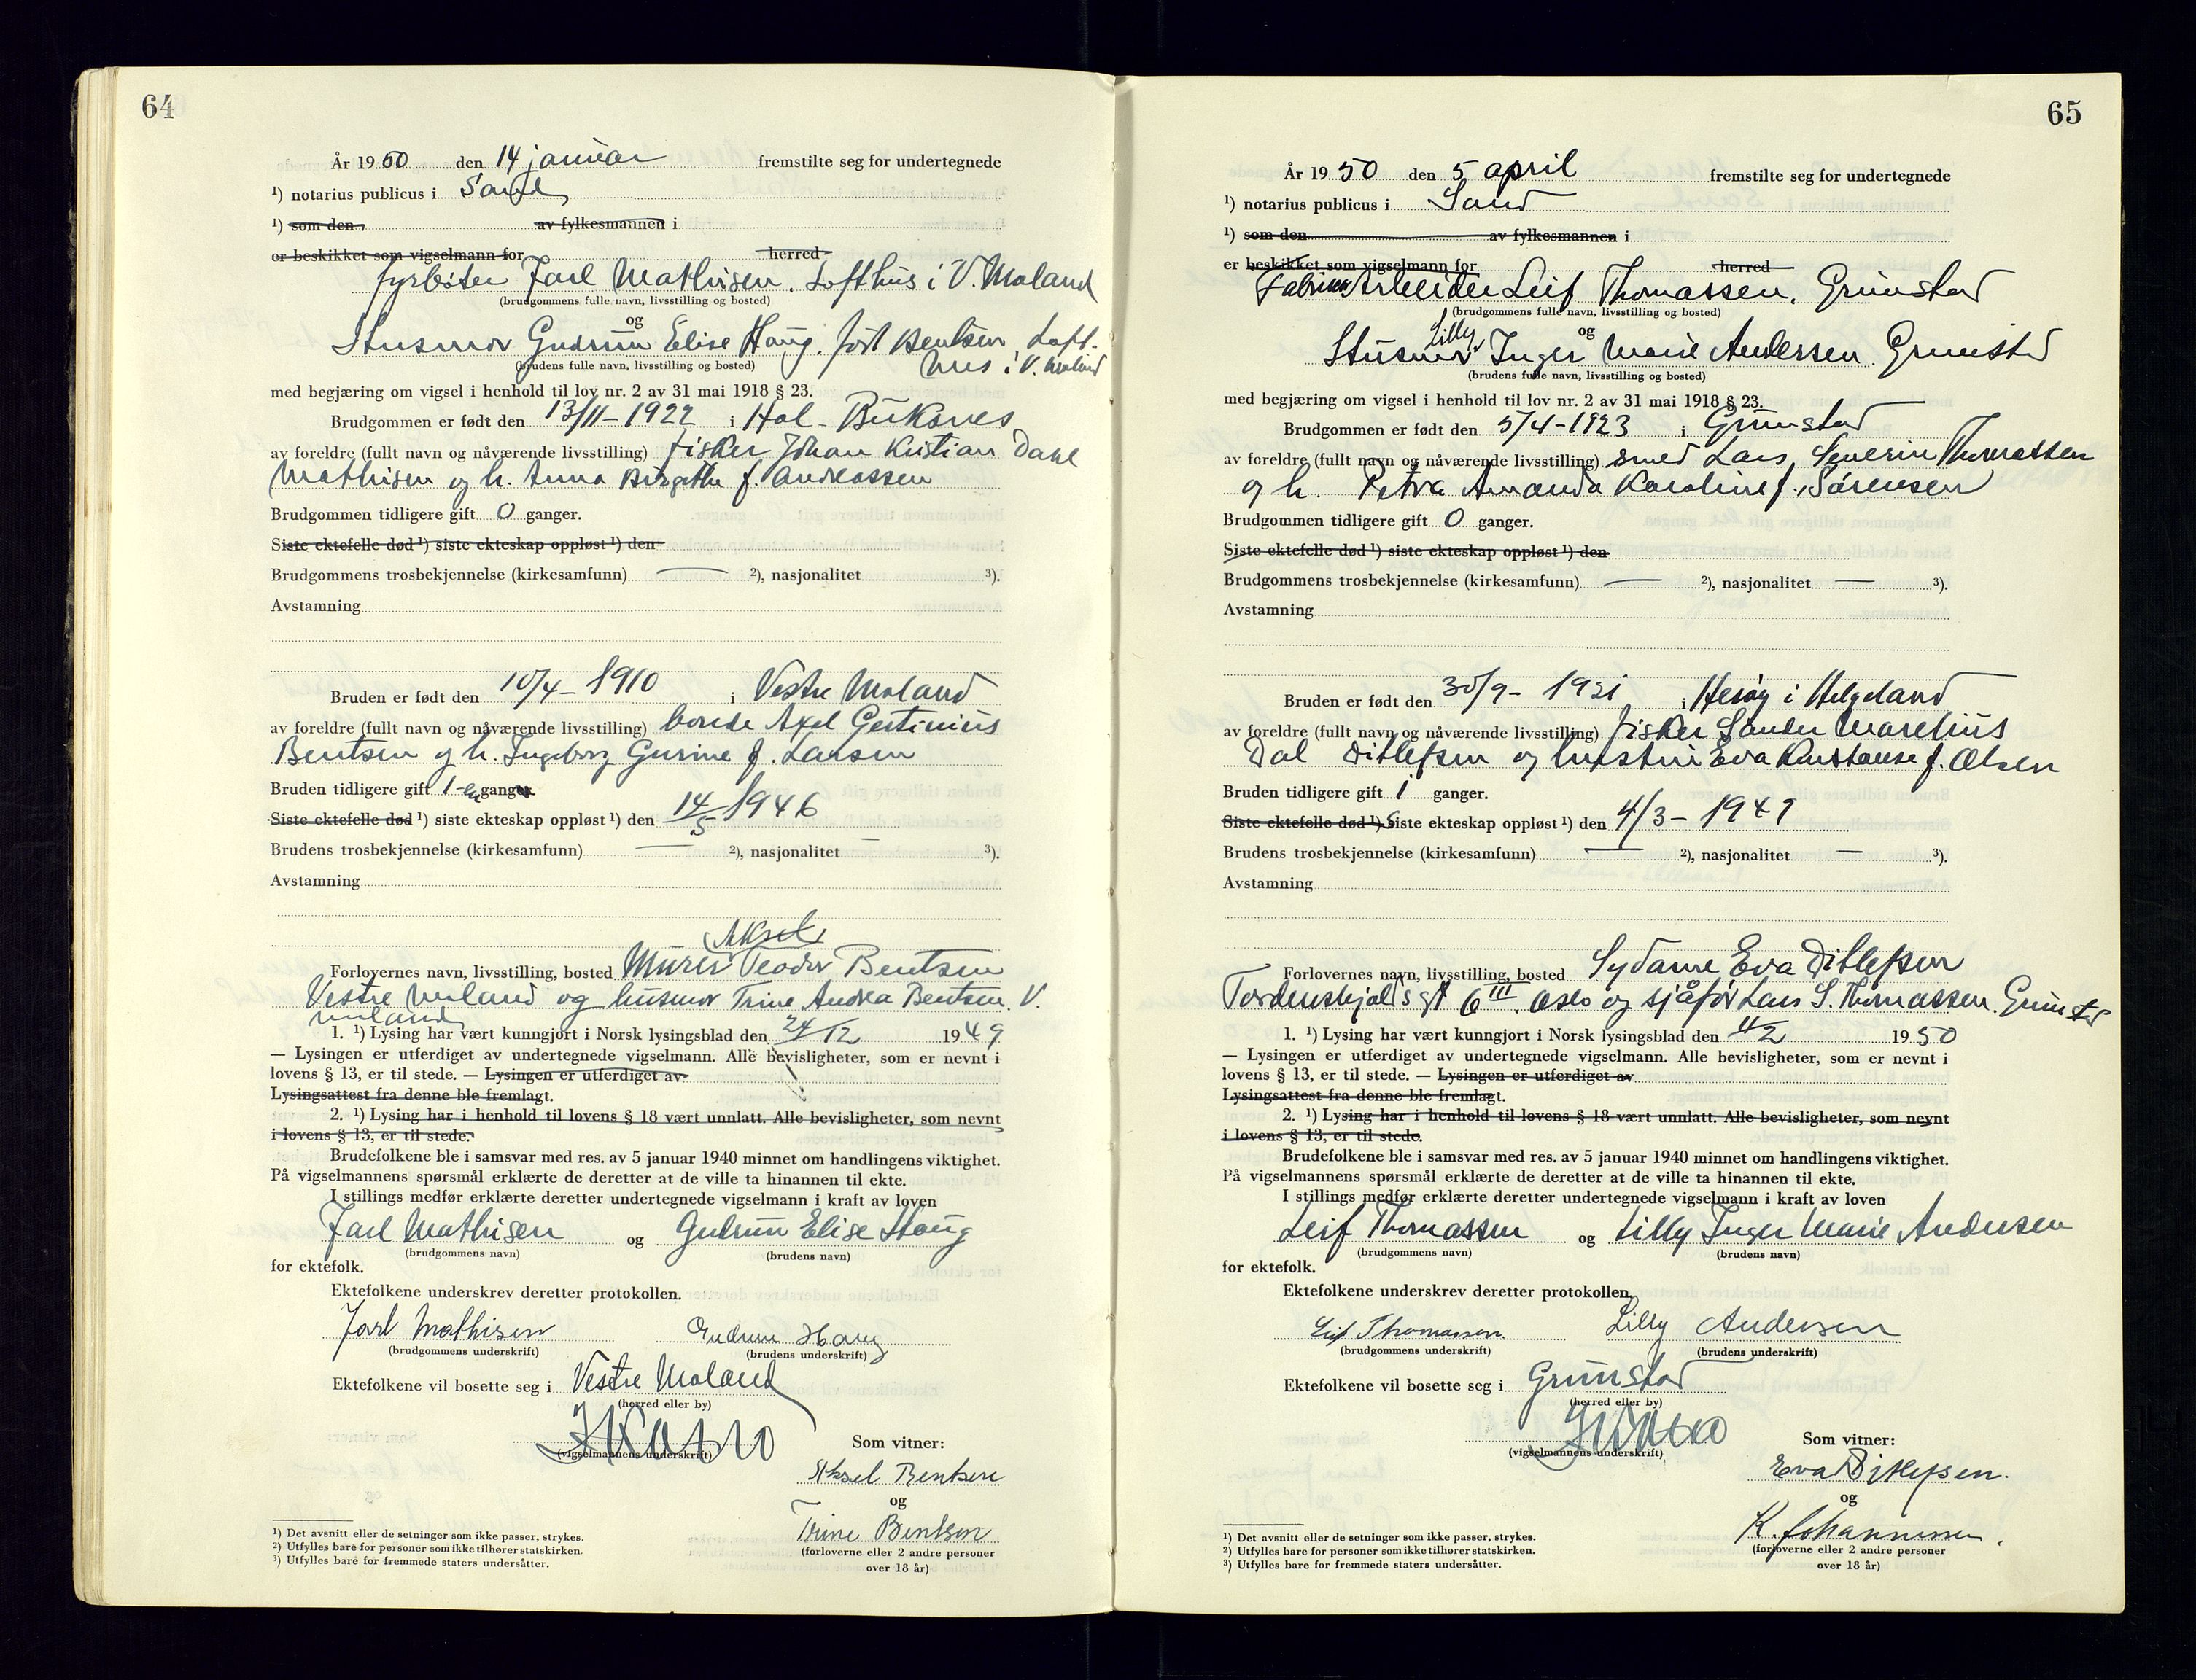 64
År 1950 den 14 januar fremstilte seg for undertegnede
¹) notarius publicus i Sand
¹) som den av fylkesmannen i
er beskikket som vigselmann for herred
fyrbøter Jarl Mathisen. Lofthus i V. Moland
(brudgommens fulle navn, livsstilling og bosted)
og
Husmor Gudrun Elise Haug, født Bentsen Loft-
hus i V. Moland
(brudens fulle navn, livsstilling og bosted)
med begjæring om vigsel i henhold til lov nr. 2 av 31 mai 1918 § 23.
Brudgommen er født den 13/11-1922 i Hol - Buksnes
av foreldre (fullt navn og nåværende livsstilling) fisker Johan Kristian Dahl
Mathisen og h. Anna Birgithe f. Andreassen
Brudgommen tidligere gift 0 ganger.
Siste ektefelle død ¹) siste ekteskap oppløst ¹) den
Brudgommens trosbekjennelse (kirkesamfunn) — ²), nasjonalitet ³).
Avstamning
Bruden er født den 10/4-1910 i Vestre Moland
av foreldre (fullt navn og nåværende livsstilling) bonde Axel Gestinius
Bentsen og h. Ingeborg Gurine f. Larsen
Bruden tidligere gift 1-en gang
Siste ektefelle død ¹) siste ekteskap oppløst ¹) den 14/5 1946
Brudens trosbekjennelse (kirkesamfunn) — ²), nasjonalitet — ³).
Avstamning
(Aksel)
Forlovernes navn, livsstilling, bosted Murer Teodor Bentsen
Vestre Moland og husmor Trine Andrea Bentsen. V.
Moland
1. ¹) Lysing har vært kunngjort i Norsk lysingsblad den 24/12 1949
— Lysingen er utferdiget av undertegnede vigselmann. Alle bevisligheter, som er nevnt i
lovens § 13, er til stede. — Lysingen er utferdiget av
Lysingsattest fra denne ble fremlagt.
2. ¹) Lysing har i henhold til lovens § 18 vært unnlatt. Alle bevisligheter, som nevnt
i lovens § 13, er til stede.
Brudefolkene ble i samsvar med res. av 5 januar 1940 minnet om handlingens viktighet.
På vigselmannens spørsmål erklærte de deretter at de ville ta hinannen til ekte.
I stillings medfør erklærte deretter undertegnede vigselmann i kraft av loven
Jarl Mathisen og Gudrun Elise Haug
(brudgommens navn) (brudens navn)
for ektefolk.
Ektefolkene underskrev deretter protokollen.
Jarl Mathisen Gudrun Haug
(brudgommens underskrift) (brudens underskrift)
Ektefolkene vil bosette seg i Vestre Moland
(herred eller by)
(vigselmannens underskrift)
Som vitner:
Aksel Bentsen
og
Trine Bentsen
(forloverne eller 2 andre personer
over 18 år)
¹) Det avsnitt eller de setninger som ikke passer, strykes.
²) Utfylles bare for personer som ikke tilhører statskirken.
³) Utfylles bare for fremmede staters undersåtter.
65
År 1950 den 5 april fremstilte seg for undertegnede
¹) notarius publicus i Sand
¹) som den av fylkesmannen i
er beskikket som vigselmann for herred
Fabrikkarbeider Leif Thomassen, Grimstad
(brudgommens fulle navn, livsstilling og bosted)
og
Husmor Lilly Inger Marie Andersen. Grimstad
(brudens fulle navn, livsstilling og bosted)
med begjæring om vigsel i henhold til lov nr. 2 av 31 mai 1918 § 23.
Brudgommen er født den 5/4-1923 i Grimstad
av foreldre (fullt navn og nåværende livsstilling) smed Lars Severin Thomassen
og h. Petra Amanda Karoline f. Sørensen
Brudgommen tidligere gift 0 ganger.
Siste ektefelle død ¹) siste ekteskap oppløst ¹) den
Brudgommens trosbekjennelse (kirkesamfunn) — ²), nasjonalitet — ³).
Avstamning
Bruden er født den 30/9- 1921 i Herøy i Helgeland
av foreldre (fullt navn og nåværende livsstilling) fisker Sander Marelius
Dal Ditlefsen og hustru Eva Konstanse f. Olsen
Bruden tidligere gift 1 ganger.
Siste ektefelle død ¹) Siste ekteskap oppløst ¹) den 4/3 - 1947
Brudens trosbekjennelse (kirkesamfunn) — ²), nasjonalitet — ³).
Avstamning
Forlovernes navn, livsstilling, bosted Sydame Eva Ditlefsen
Tordenskjolds gt 6 III. Oslo og sjåfør Lars S. Thomassen. Grimstad
1. ¹) Lysing har vært kunngjort i Norsk lysingsblad den 11/2 1950
— Lysingen er utferdiget av undertegnede vigselmann. Alle bevisligheter, som er nevnt i
lovens § 13, er til stede. — Lysingen er utferdiget av
Lysingsattest fra denne ble fremlagt.
2. ¹) Lysing har i henhold til lovens § 18 vært unnlatt. Alle bevisligheter, som nevnt
i lovens § 13, er til stede.
Brudefolkene ble i samsvar med res. av 5 januar 1940 minnet om handlingens viktighet.
På vigselmannens spørsmål erklærte de deretter at de ville ta hinannen til ekte.
I stillings medfør erklærte deretter undertegnede vigselmann i kraft av loven
Leif Thomassen og Lilly Inger Marie Andersen
(brudgommens navn) (brudens navn)
for ektefolk.
Ektefolkene underskrev deretter protokollen.
Leif Thomassen Lilly Andersen
(brudgommens underskrift) (brudens underskrift)
Ektefolkene vil bosette seg i Grimstad
(herred eller by)
(vigselmannens underskrift)
Som vitner:
Eva Ditlefsen.
og
K. Johannessen.
(forloverne eller 2 andre personer
over 18 år)
¹) Det avsnitt eller de setninger som ikke passer, strykes.
²) Utfylles bare for personer som ikke tilhører statskirken.
³) Utfylles bare for fremmede staters undersåtter.